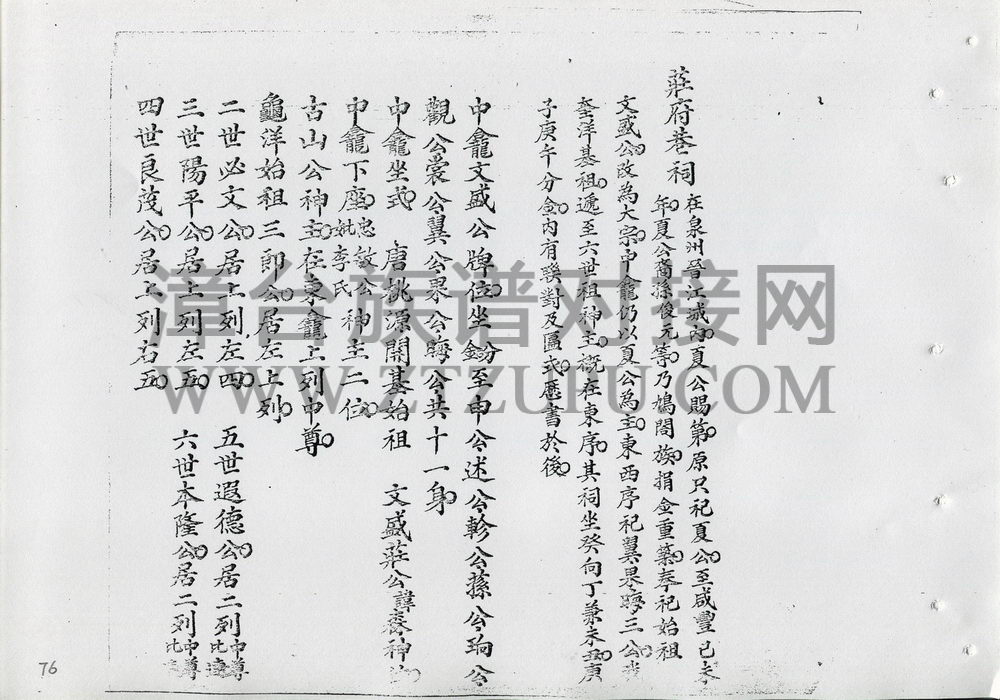 莊府巷祠
在泉州晉江城內夏公賜第原只祀夏公至咸豐己未
年夏公裔孫俊元等乃鳩闔族捐金重築奉祀始祖
文盛公改為大宗中龕仍以夏公為主東西序祀翼果晦三公我
奎洋基祖遞至六世祖神主概在東序其祠坐癸向丁兼未丑庚
子庚午分金內有聯對及匾式歷書於後
中龕文盛公牌位坐鎮至申公述公軫公蓀公珦公
觀公裳公翼公果公晦公共十一身
中龕坐式 唐桃源開基始祖 文盛莊公諱森神
中龕下座忠敏公妣李氏神主二位
古山公神主在東龕上列中尊
龜洋始祖三郎公居左上列
二世必文公居上列左四 五世遐德公居二列中尊比
三世陽平公居上列左五 六世本隆公居二列中尊比
四世良茂公居上列右五
漳台族谱对接网
WWW.ZTZUPU.COM
76